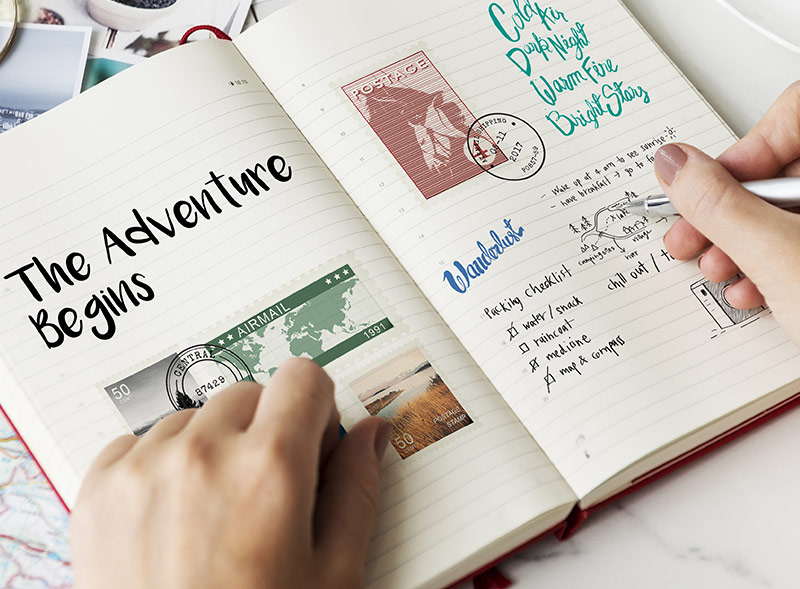 The Adventure
Begins
AIRMAIL
1991
CENTRAL
87429
50
CENT
POSTAGE
STAMP
50
POSTAGE
SHIPPING
04-11
2017
POST-59
Cold Air
Dark Night
Warm Fire
Bright Stars
- Wake up at 4 am to see sunrise
- have breakfast → go to for
lake
camping site
village
river
Wanderlust
chill out /
Packing Checklist
water/snack
raincoat
medicine
map & compass